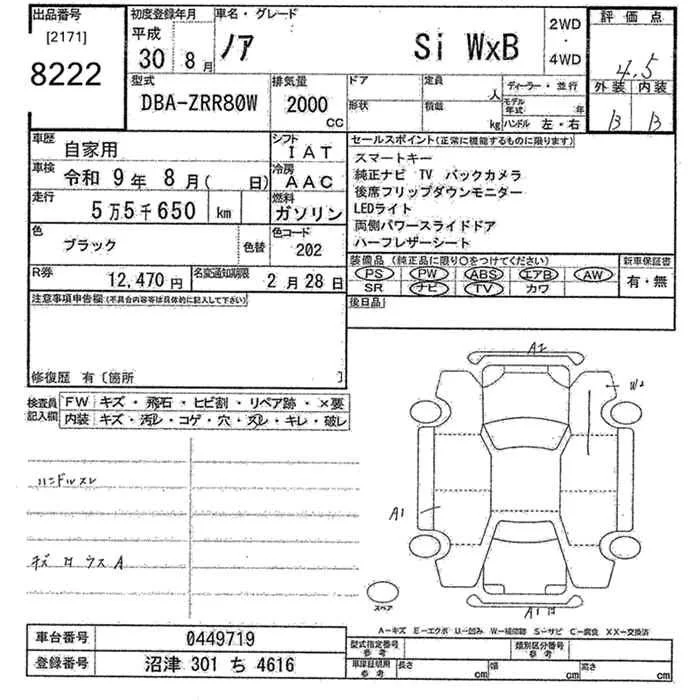 出品番号 初度登録年月 車名・グレード 2WD 評価点
[2171] 平成 ・
8222 30 8月 ノア Si WxB 4WD 4.5
型式 排気量 ドア 定員 人 ディーラー・並行 外装 内装
DBA-ZRR80W 2000 CC 形状 積載 kg モデル年式 年 B B
ハンドル 左・右
車歴 自家用 シフト IAT セールスポイント(正常に機能するものに限ります)
車検 令和 9年 8月( 日) 冷房 AAC スマートキー
走行 5万5千650 km 燃料 ガソリン 純正ナビ TV バックカメラ
色 ブラック 色替 色コード 202 後席フリップダウンモニター
LEDライト
両側パワースライドドア
ハーフレザーシート
R券 12,470円 名変通知期限 2月28日 装備品 (純正品に限り○をつけてください) 新車保証書
PS PW ABS エアB AW 有・無
SR ナビ TV カワ
注意事項申告欄(不具合内容等は具体的に記入して下さい) 後日品
修復歴 有〔箇所 〕
検査員記入欄 FW キズ・飛石・ヒビ割・リペア跡・×要
内装 キズ・汚レ・コゲ・穴・スレ・キレ・破レ
A2
W2
ハンドルスレ
A1
キズ ロウスA
スペア
A1
A―キズ E―エクボ U―凹み W―補修跡 S―サビ C―腐食 XX―交換済
車台番号 0449719 型式指定番号 参考 類別区分番号 参考
登録番号 沼津 301 ち 4616 車庫証明用 参考 長さ cm 幅 cm 高さ cm